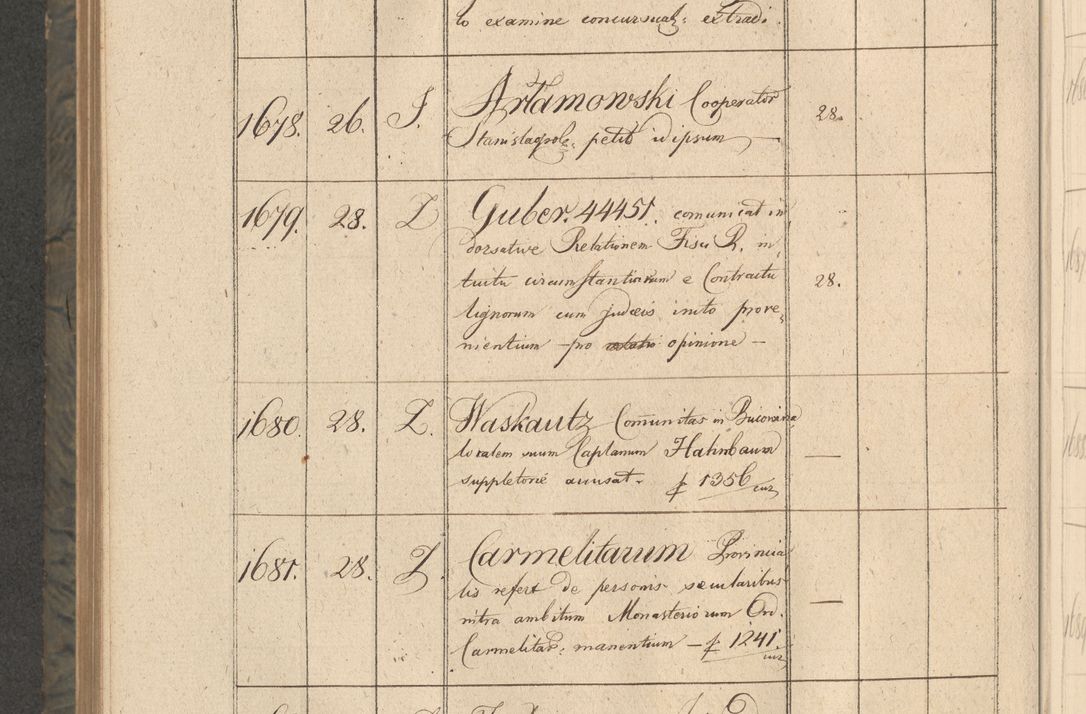 to examine concursual: extradi.
1678. 26. J. Artamowski Cooperator 28.
petit idipsum
1679. 28. Guber. 44451. comunicat in
dorsative Relationem Fisci R. in
tuitu circumstantiarum e Contractu 28.
lignorum cum judaeis inito prove,
nientium – pro opinione –
1680. 28. Z. Waskautz Comunitas in Bucowina
localem suum Caplanum Hahnbaum —
suppletorie accusat. f 1356 cur
1681. 28. Carmelitarum Provincia
lis refert de personis saecularibus
intra ambitum Monasteriorum Ord. —
Carmelitar: manentium – f 1241. cur